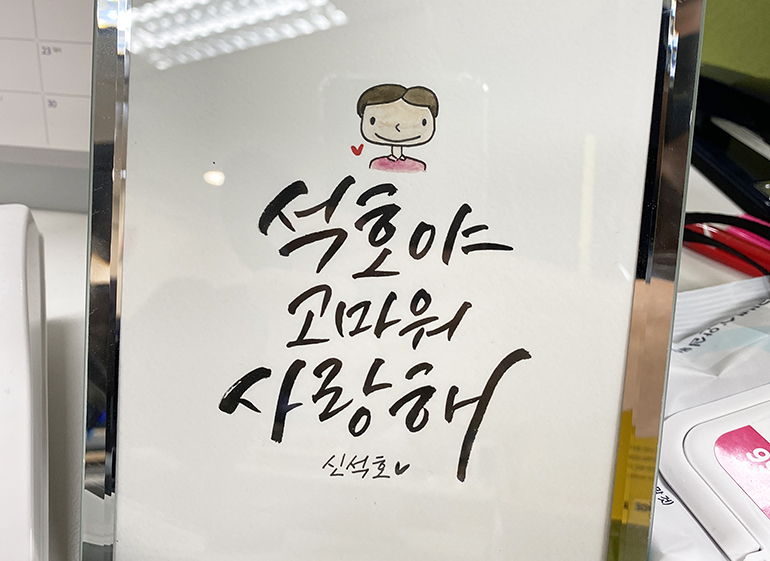 석호야
고마워
사랑해
신석호
23
30